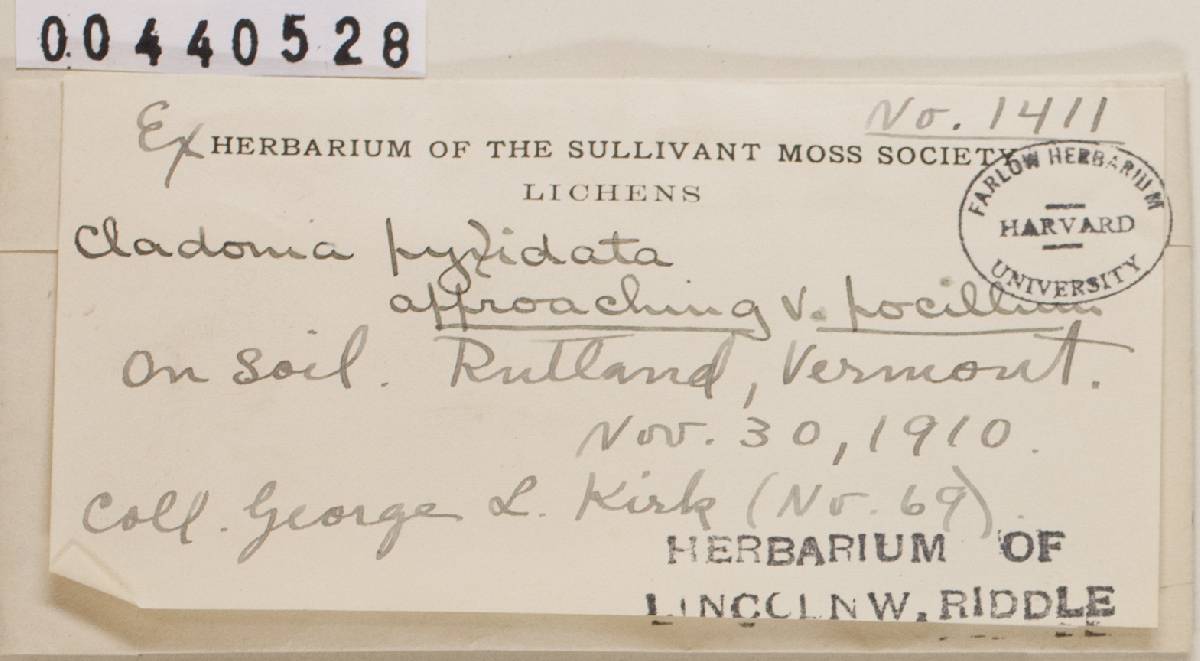 00440528
No. 1411
Ex HERBARIUM OF THE SULLIVANT MOSS SOCIETY
LICHENS
FARLOW HERBARIUM
HARVARD
UNIVERSITY
Cladonia pyxidata
approaching v. pocillum
on soil. Rutland, Vermont.
Nov. 30, 1910.
Coll. George L. Kirk (No. 69).
HERBARIUM OF
LINCOLN W. RIDDLE